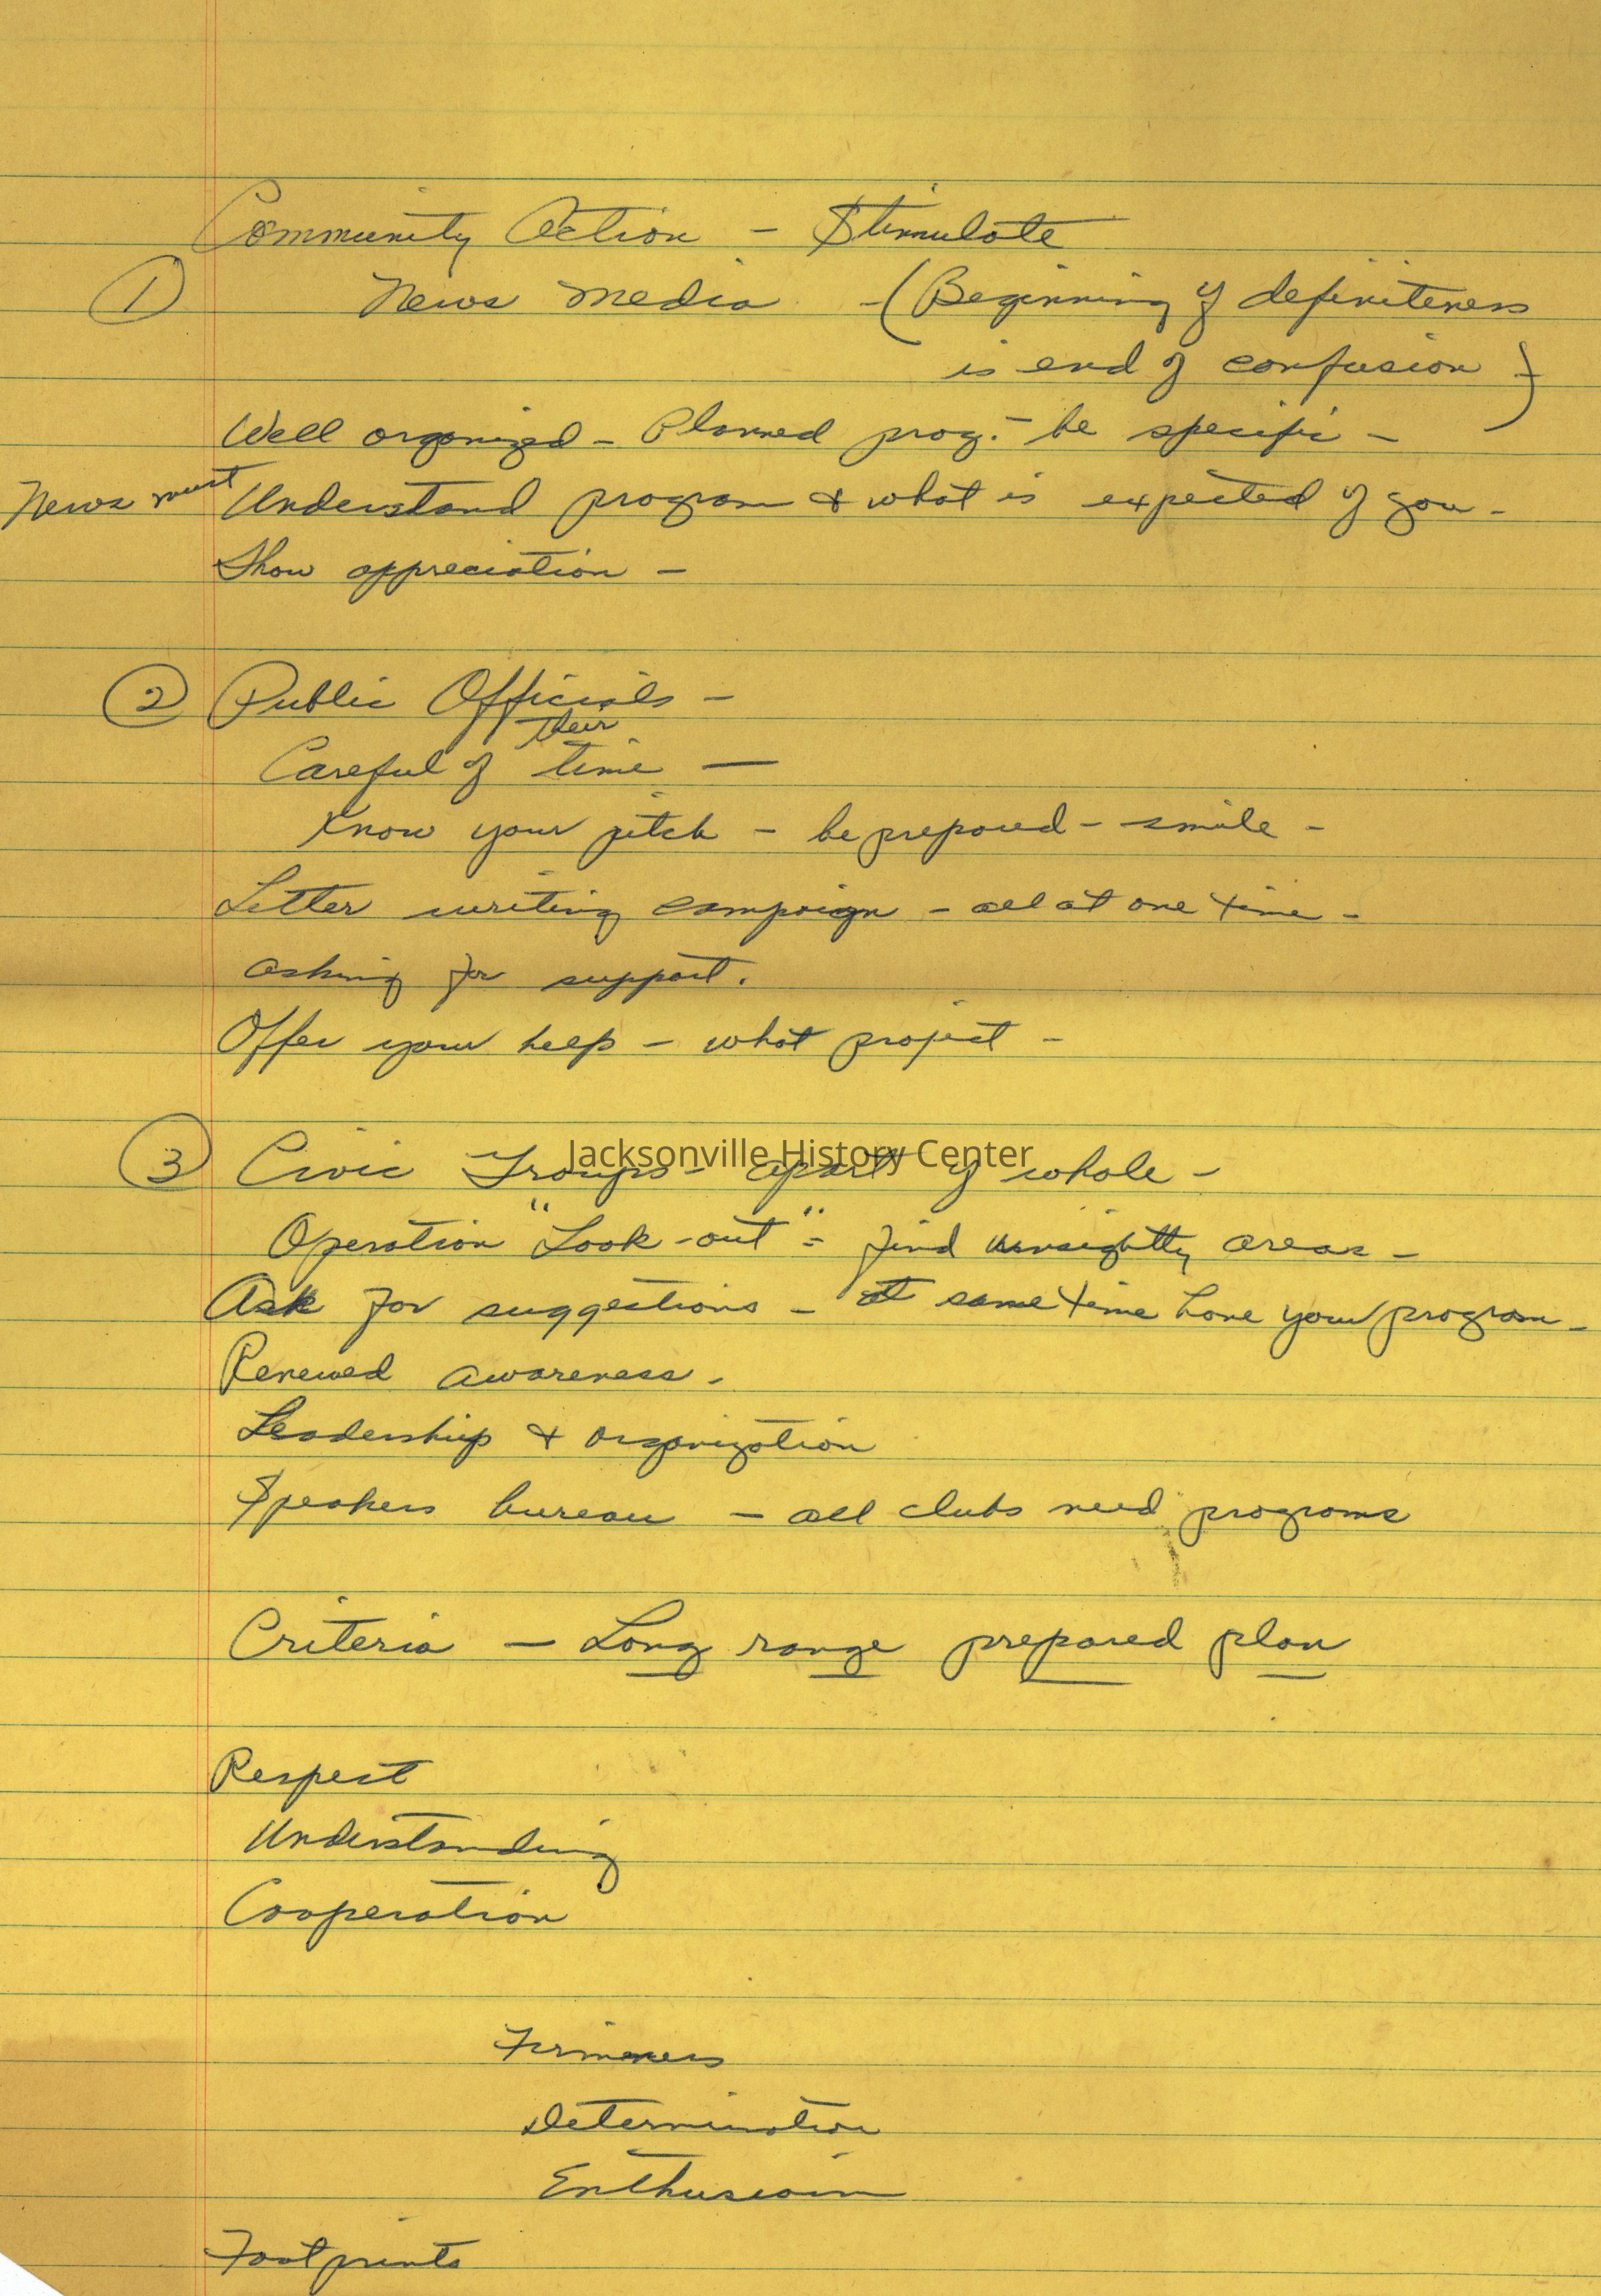 Community Action - Stimulate
① News Media - (Beginning of definiteness
is end of confusion -)
Well organized - Planned prog. - be specific -
News must Understand program & what is expected of you -
Show appreciation -
② Public Officials -
their
Careful of time —
Know your pitch - be prepared - smile -
Letter writing campaign - all at one time -
asking for support.
Offer your help - what project -
Jacksonville History Center
③ Civic Groups - apart of whole -
Operation "Look-out" - find unsightly areas -
Ask for suggestions - at same time have your program -
Renewed awareness -
Leadership & organization
Speakers bureau - all clubs need programs
Criteria - Long range prepared plan
Respect
Understanding
Cooperation
Firmness
Determination
Enthusiasm
Footprints